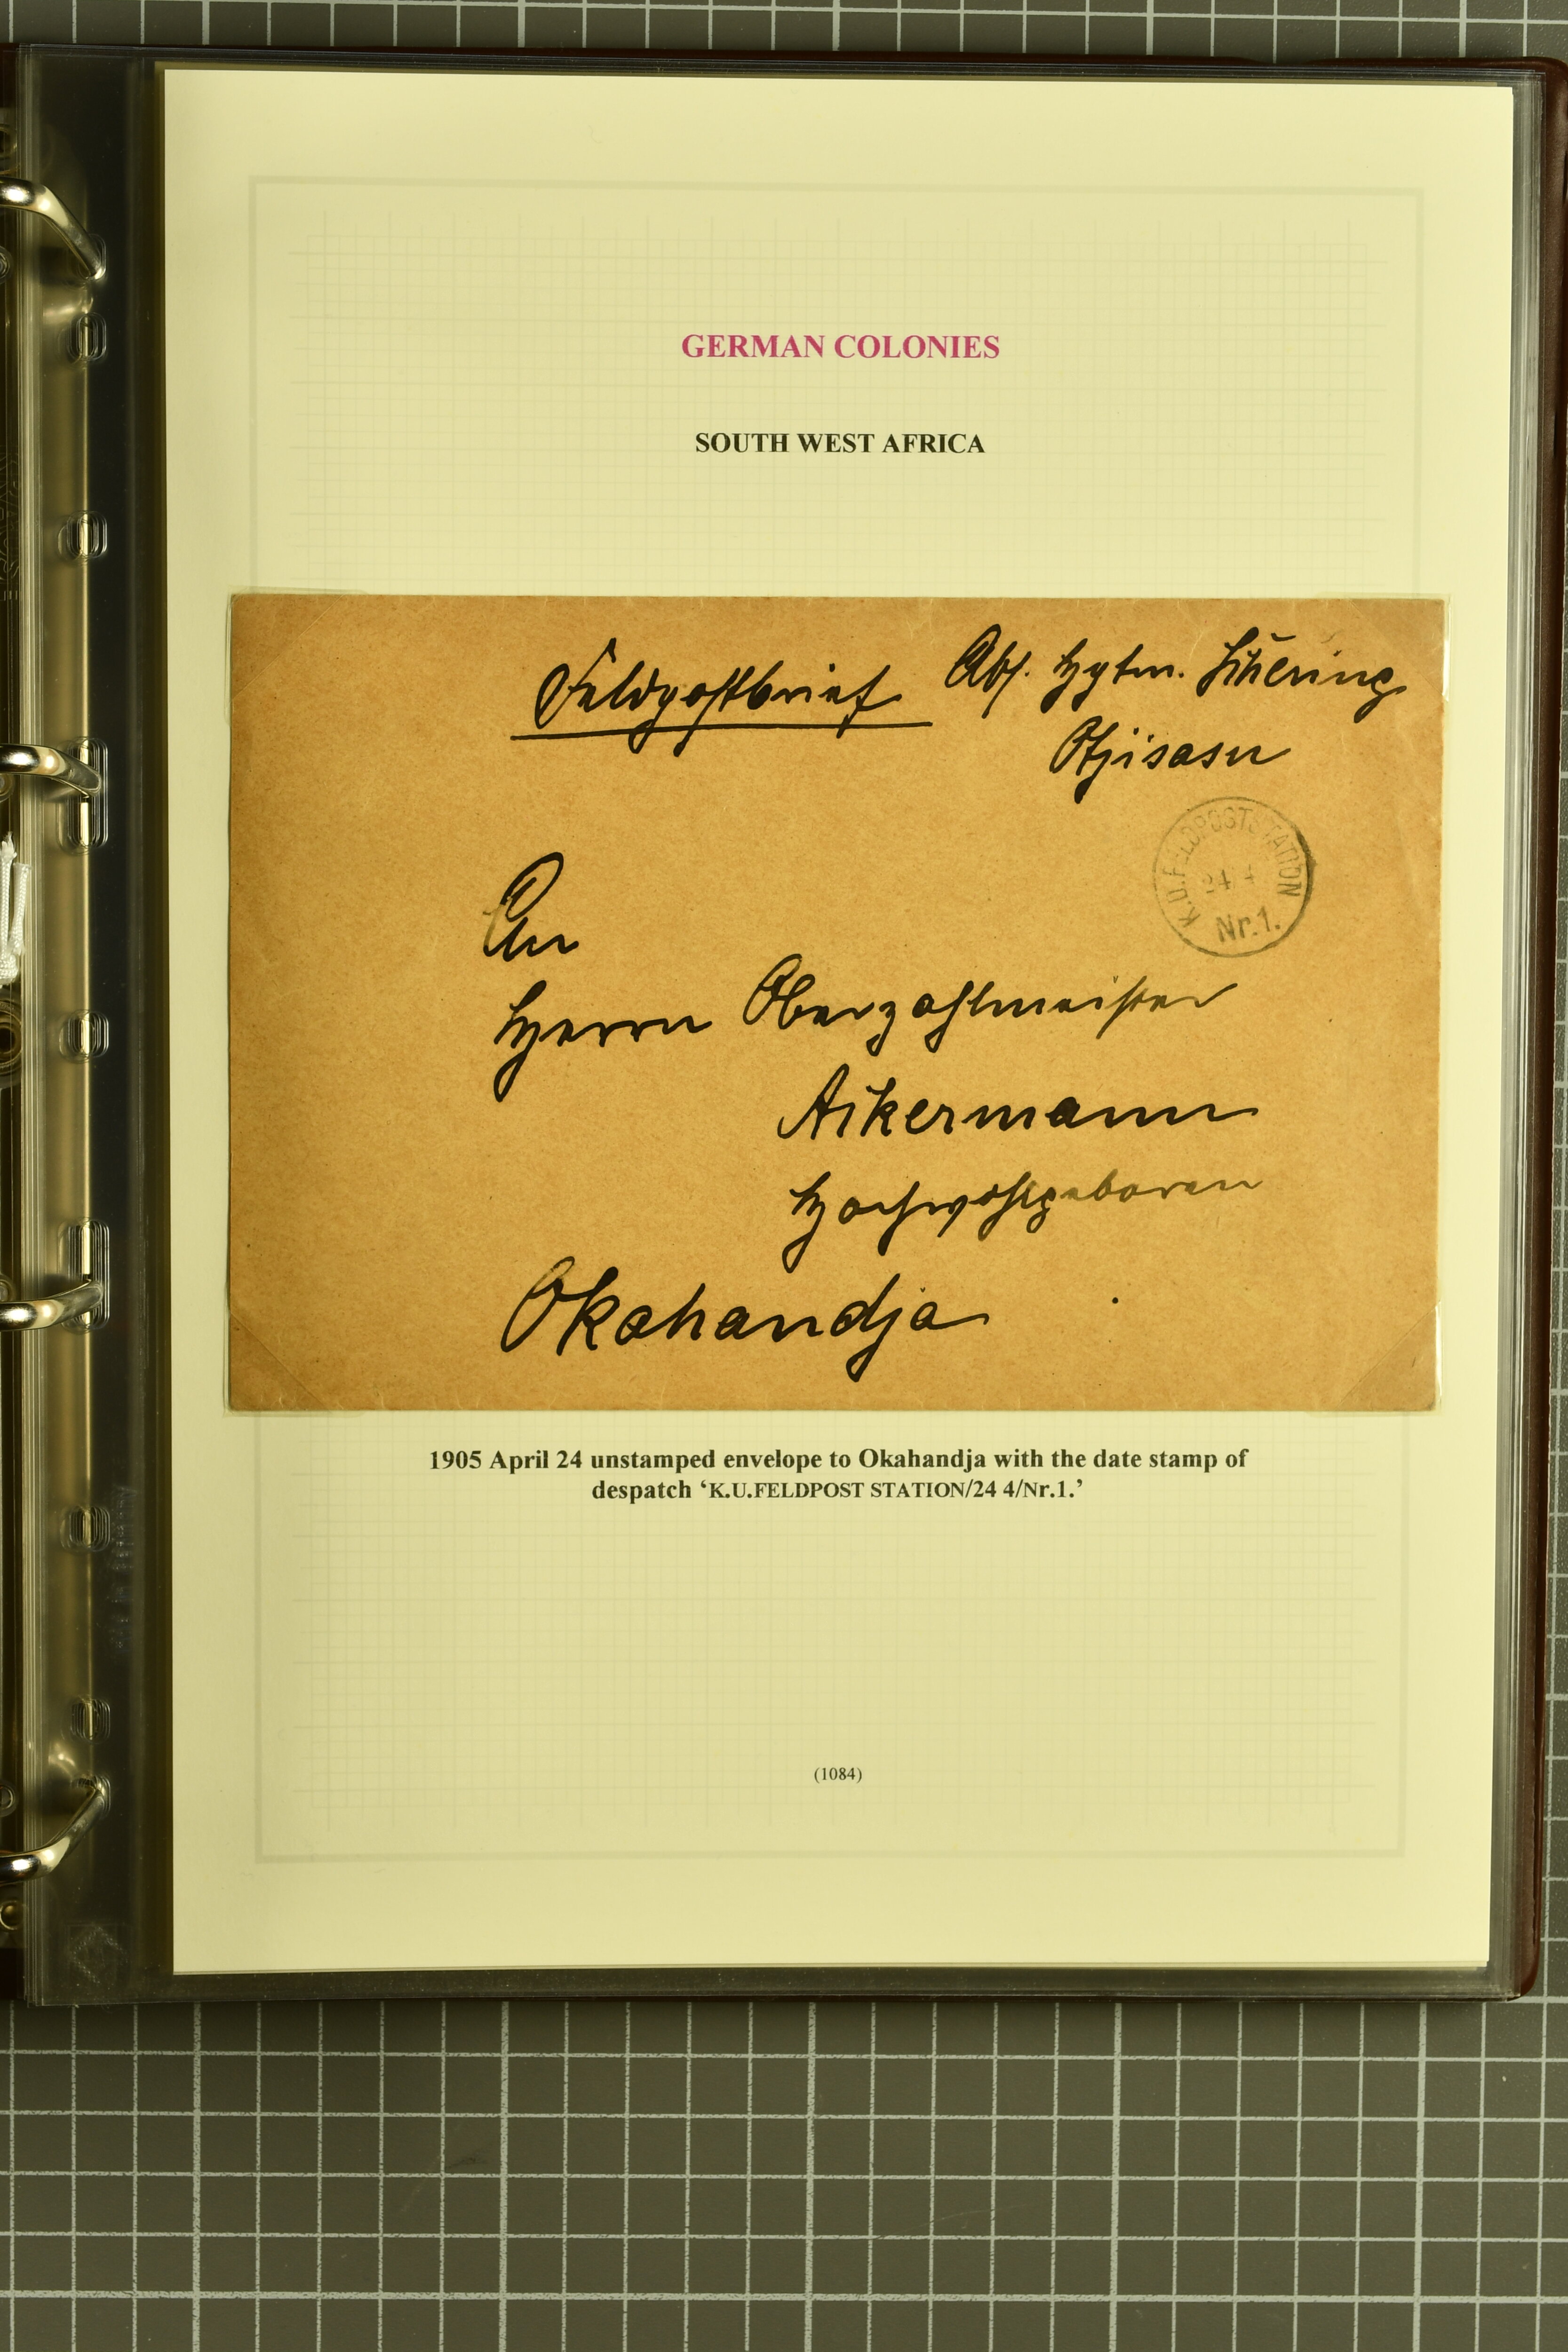 GERMAN COLONIES
SOUTH WEST AFRICA
Feldpostbrief
Abs. Hptm.
Otjisasu
K.D.FELDPOSTSTATION
24/4
Nr.1.
An
Herrn Oberzahlmeister
Aikermann
Hochwohlgeboren
Okahandja
1905 April 24 unstamped envelope to Okahandja with the date stamp of
despatch ‘K.U.FELDPOST STATION/24 4/Nr.1.’
(1084)